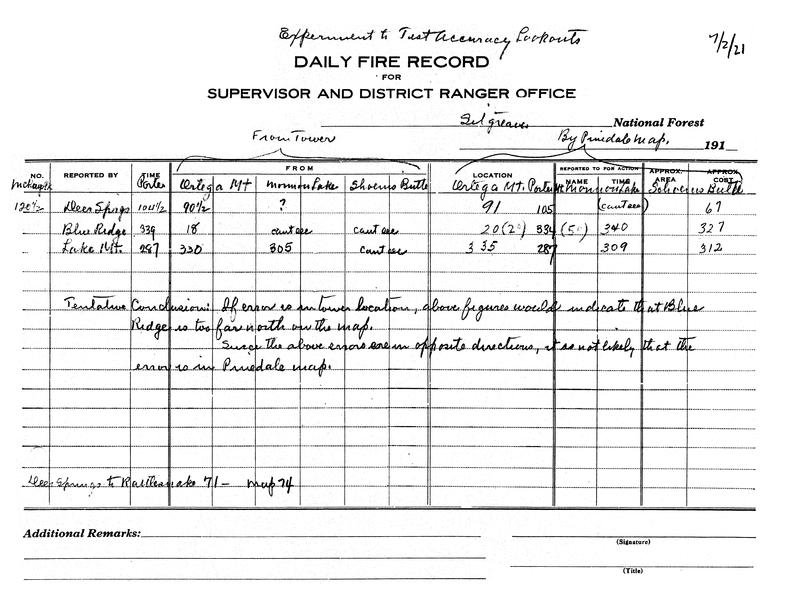 Experiment to Test Accuracy Lookouts
7/2/21
DAILY FIRE RECORD
FOR
SUPERVISOR AND DISTRICT RANGER OFFICE
National Forest
From Tower
By Pinedale Map.
191
NO. REPORTED BY TIME FROM LOCATION REPORTED TO FOR ACTION APPROX. AREA APPROX. COST
NAME TIME
Porter Ortega Mt Mormon Lake Ortega Mt. Porter Mt Mormon Lake
120½ Deer Springs 104½ 90½ ? 91 105 (cant see) 67
Blue Ridge 339 18 cant see cant see 20 (2°) 334 (5°) 340 327
Lake Mt. 287 330 305 cant see 335 287 309 312
Tentative Conclusion: If error is in tower location, above figures would indicate that Blue
Ridge is too far north on the map.
Since the above errors are in opposite directions, it is not likely that the
error is in Pinedale map.
Deer Springs to Rattlesnake 71 - map 74
Additional Remarks:
(Signature)
(Title)